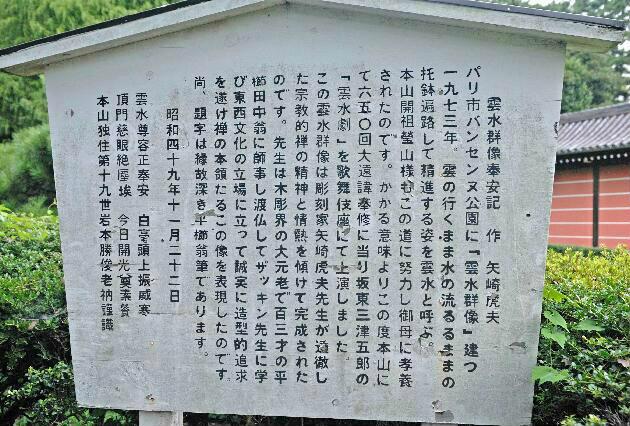 雲水群像奉安記　作　矢崎虎夫
パリ市バンセンヌ公園に『雲水群像』建つ
一九七三年。雲の行くまま水の流るるままの
托鉢遍路して精進する姿を雲水と呼ぶ。
本山開祖瑩山様もこの道に努力し御母に孝養
されたのです。かかる意味よりこの度本山に
て六五〇回大遠諱奉修に当り坂東三津五郎の
『雲水劇』を歌舞伎座にて上演しました。
この雲水群像は彫刻家矢崎虎夫先生が透徹し
た宗教的禅の精神と情熱を傾けて完成された
のです。先生は木彫界の大元老で百三才の平
櫛田中翁に師事し渡仏してザッキン先生に学
び東西文化の立場に立って誠実に造型的追求
を遂げ禅の本領たるこの像を表現したのです
尚、題字は縁故深き平櫛翁筆であります。
昭和四十九年十一月二十二日
雲水尊容正奉安　白毫頭上振威寒
頂門慈眼絶塵埃　今日開光奠茶答
本山独住第十九世岩本勝俊老衲謹識